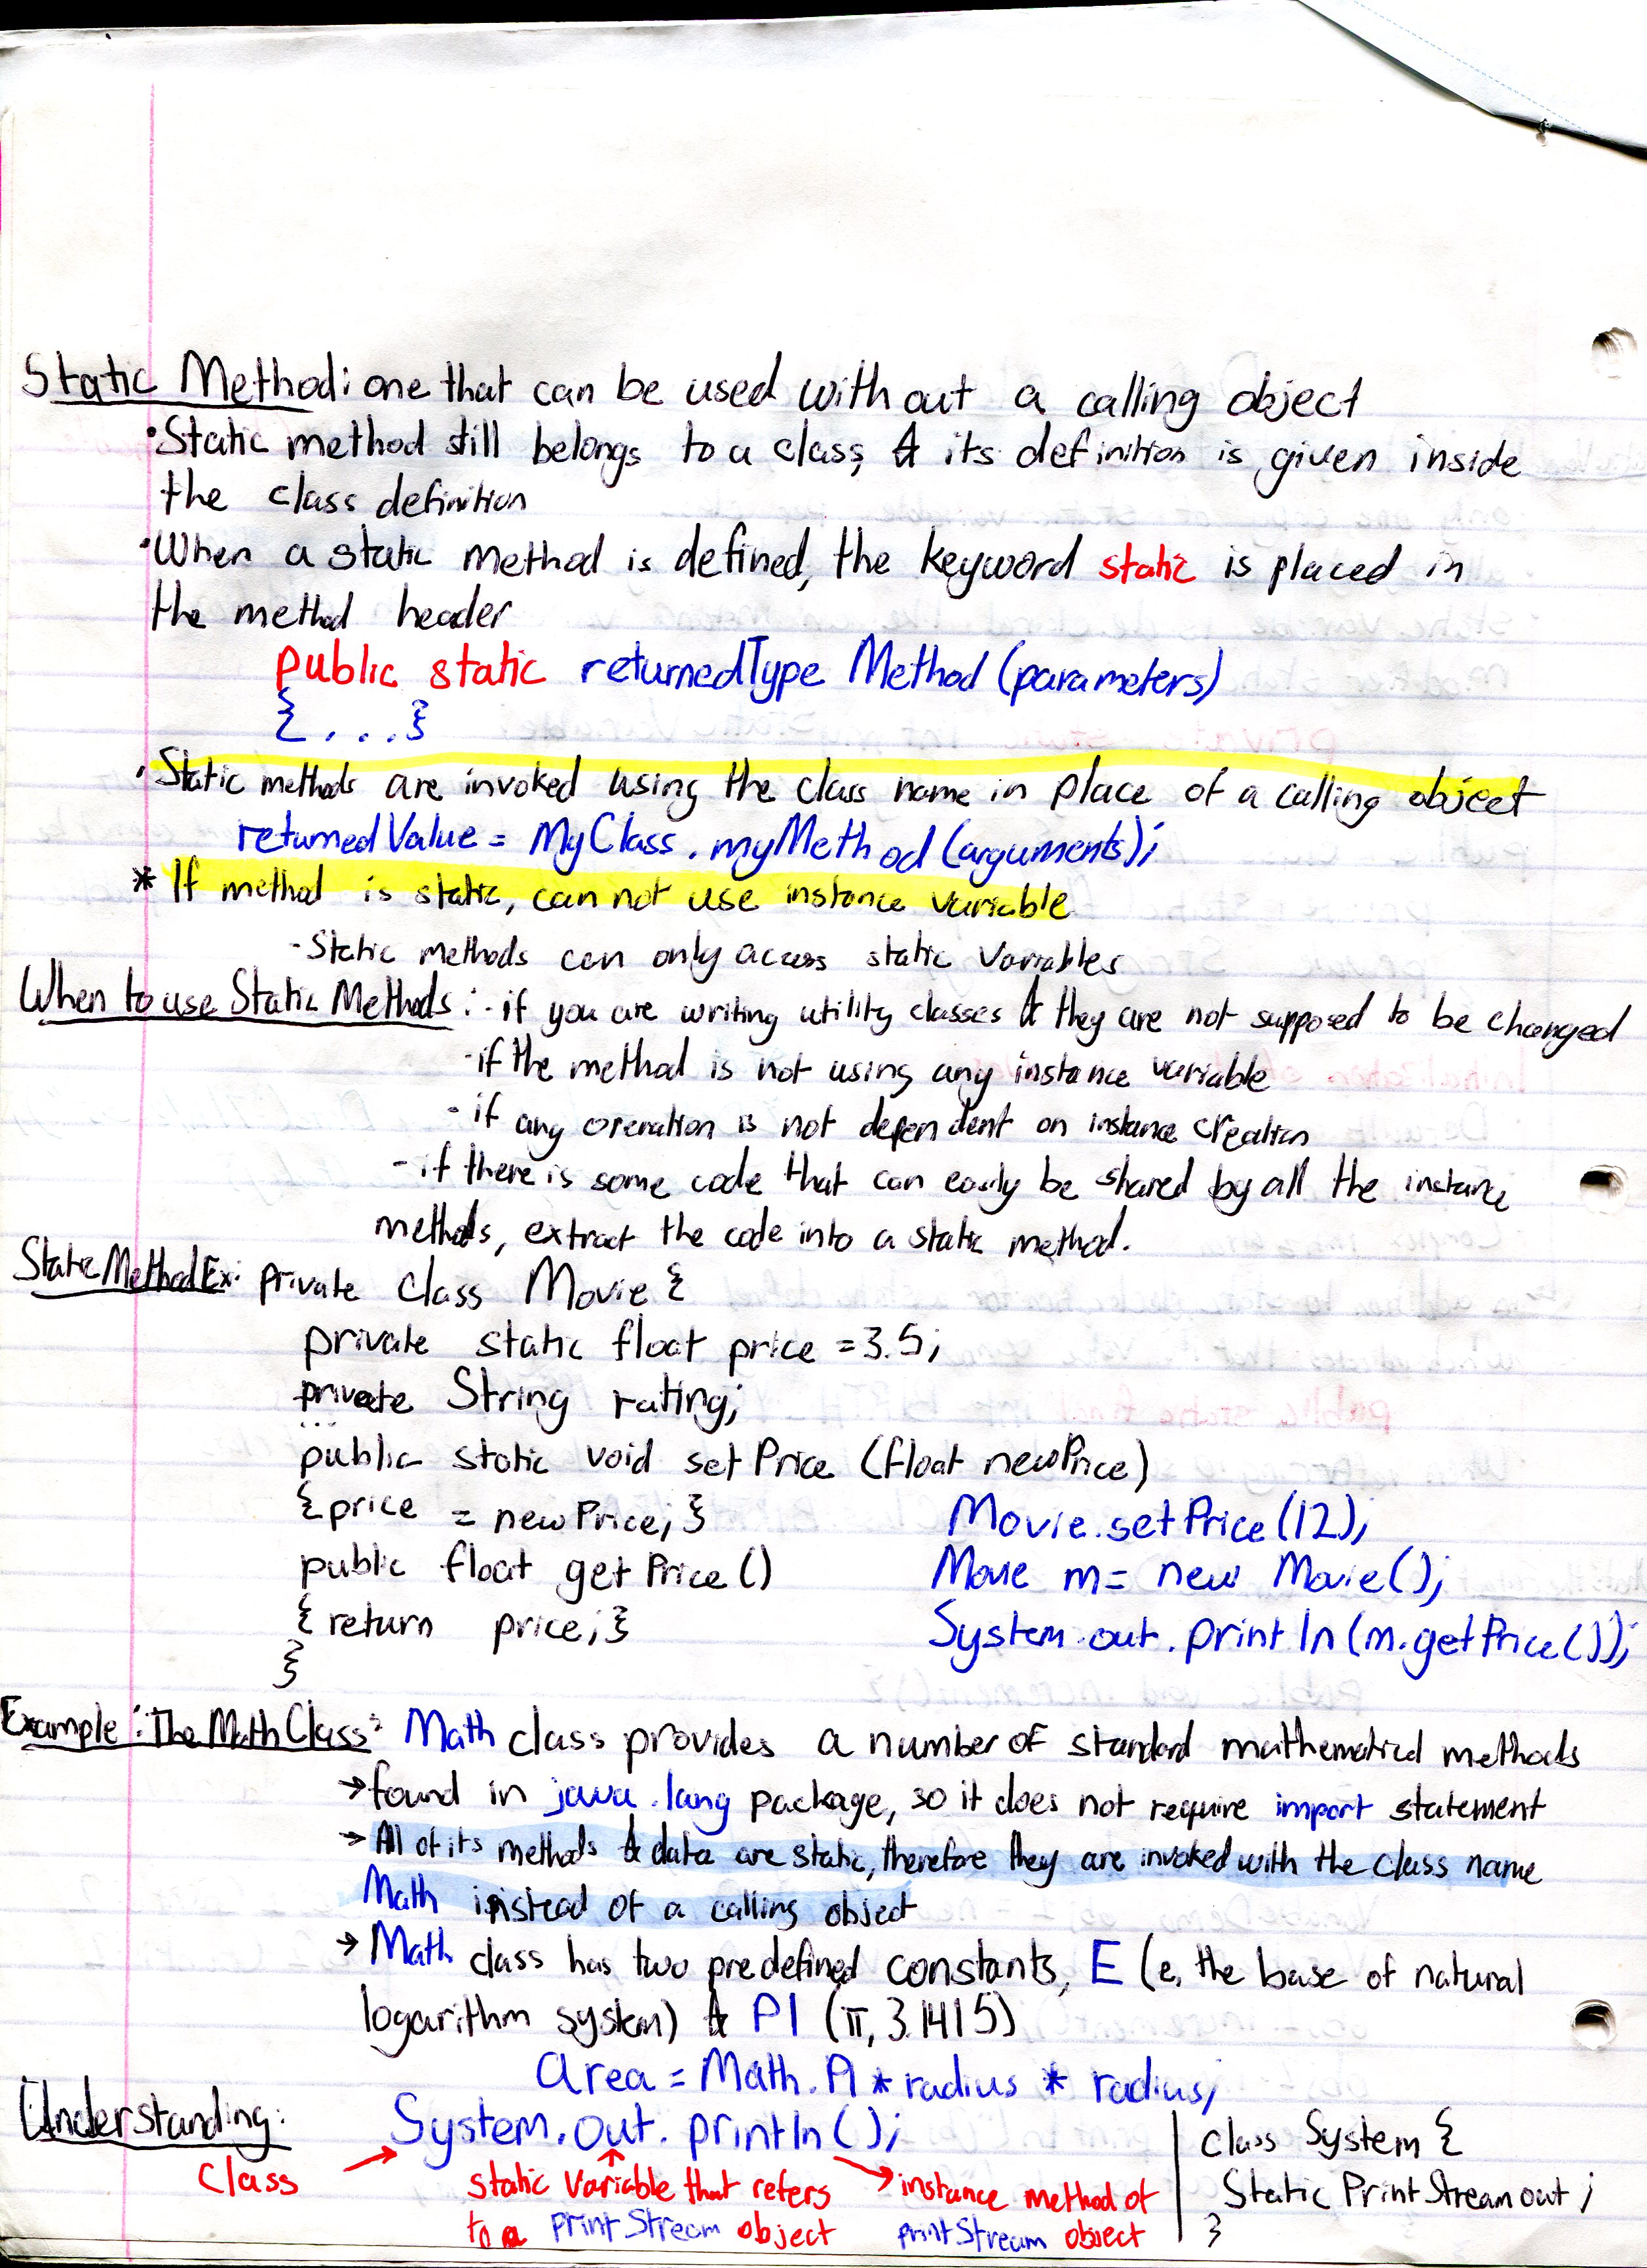 Static Method: one that can be used without a calling object
• Static method still belongs to a class, & its definition is given inside
the class definition
• When a static method is defined, the keyword static is placed in
the method header
public static returnedType Method (parameters)
{ ... }
• Static methods are invoked using the class name in place of a calling object
returnedValue = MyClass.myMethod(arguments);
* If method is static, can not use instance variable
- Static methods can only access static variables
When to use Static Methods: - if you are writing utility classes & they are not supposed to be changed
- if the method is not using any instance variable
- if any operation is not dependent on instance creation
- if there is some code that can easily be shared by all the instance
methods, extract the code into a static method.
Static Method Ex: private class Movie {
private static float price = 3.5;
private String rating;
...
public static void setPrice (float newPrice)
{ price = newPrice; } Movie.setPrice(12);
public float getPrice () Movie m = new Movie();
{ return price; } System.out.println(m.getPrice());
}
Example: The Math Class: Math class provides a number of standard mathematical methods
→ found in java.lang package, so it does not require import statement
→ All of its methods & data are static, therefore they are invoked with the class name
Math instead of a calling object
→ Math class has two predefined constants, E (e, the base of natural
logarithm system) & PI (π, 3.1415)
area = Math.PI * radius * radius;
Understanding: System.out.println(); class System {
class static variable that refers instance method of Static PrintStream out;
to a printStream object printStream object }